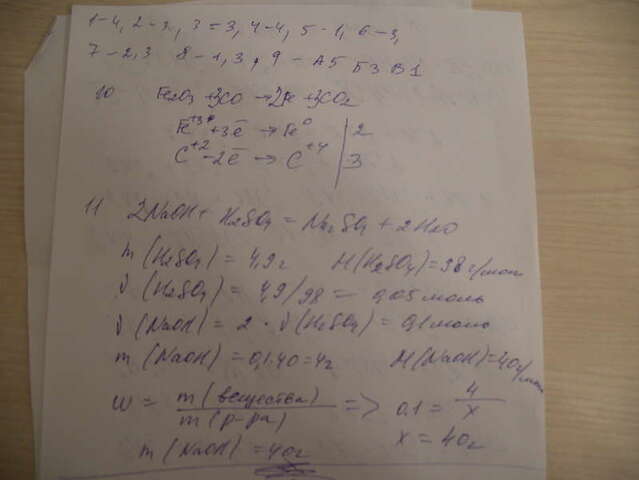 1-4, 2-3, 3=3, 4-4, 5-1, 6-3,
7-2,3 8-1,3, 9-А5 Б3 В1
10 Fe2O3 +3CO →2Fe +3CO2
Fe+3 +3ē → Fe0 | 2
C+2 -2ē → C+4 | 3
11 2NaOH + H2SO4 = Na2SO4 + 2H2O
m (H2SO4) = 4,9г M(H2SO4)=98г/моль
ν (H2SO4) = 4,9/98 = 0,05 моль
ν (NaOH) = 2 · ν(H2SO4) = 0,1 моль
m (NaOH) = 0,1·40=4г M(NaOH)=40г/моль
w = m(вещества) / m(р-ра) => 0,1 = 4/x
x = 40г
m (NaOH) = 40г